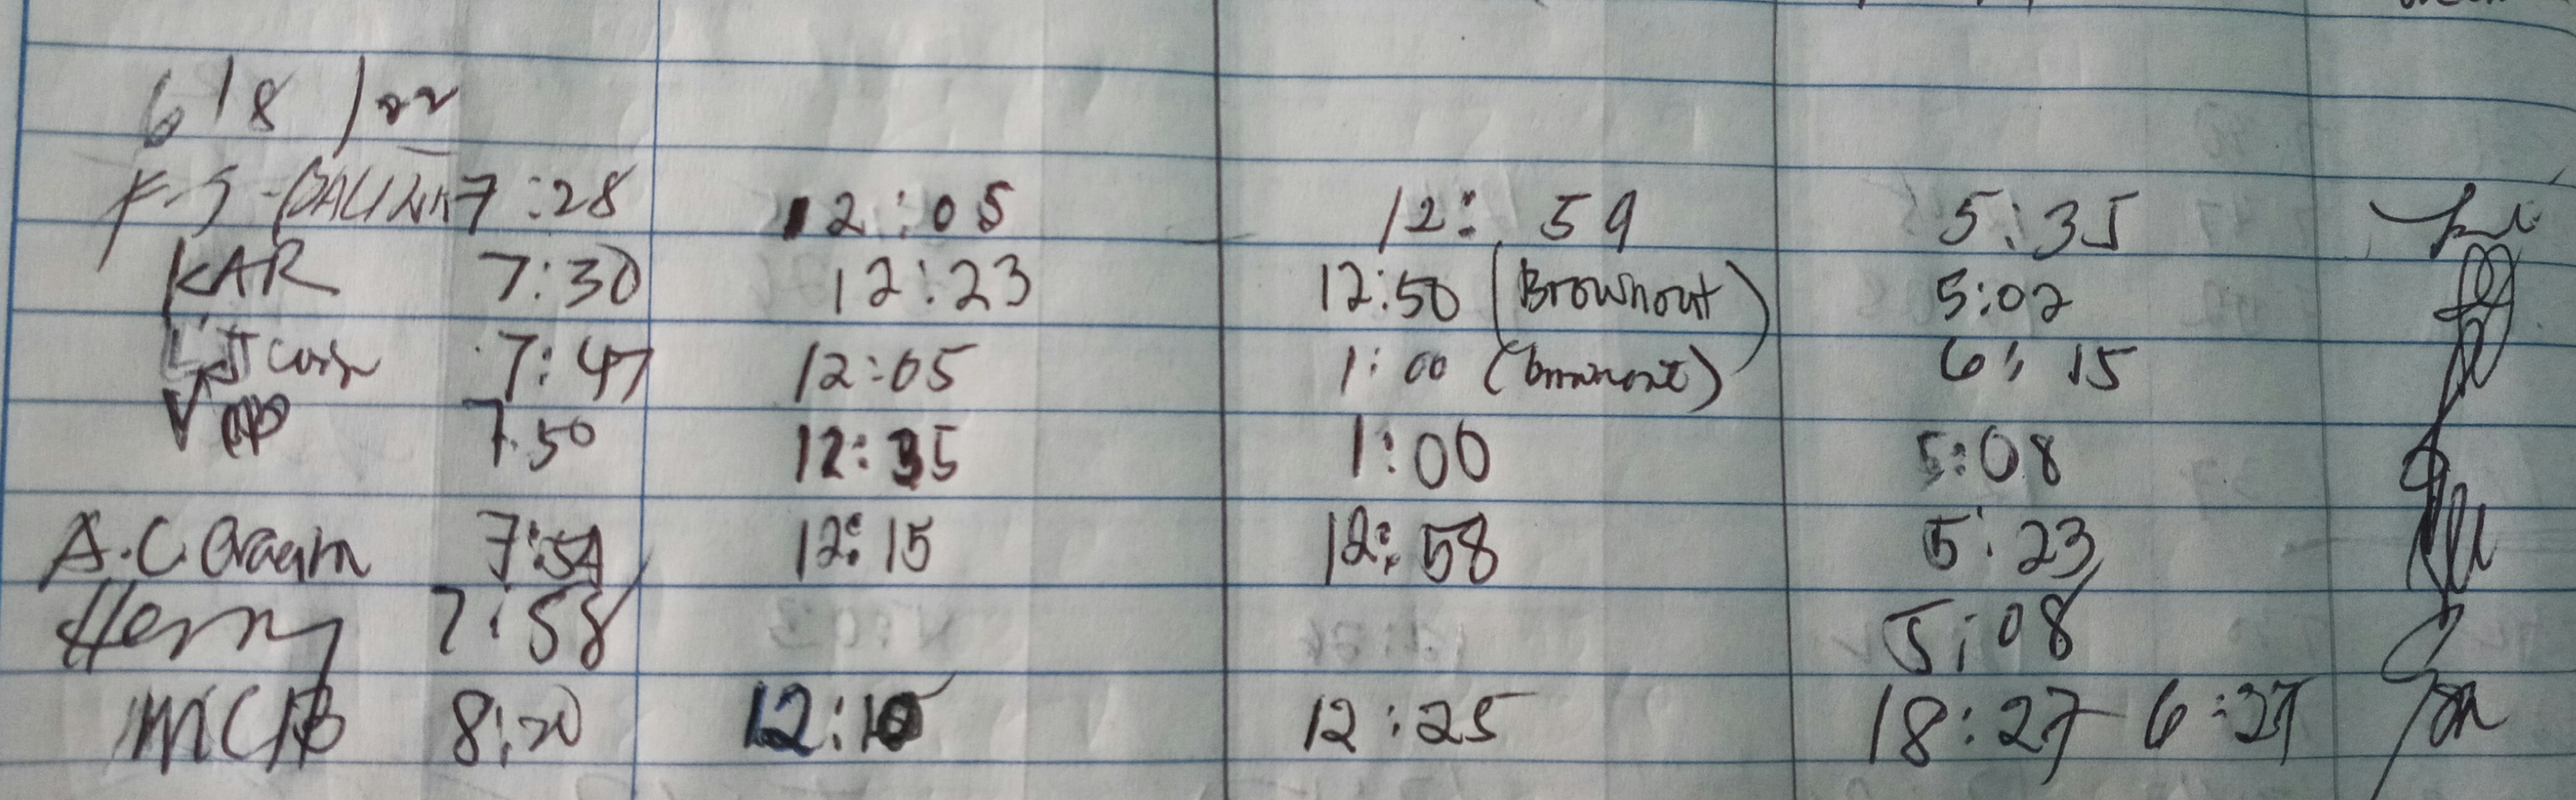 6/8/22
7:28 12:05 12:59 5:35
KAR 7:30 12:23 12:50 (Brownout) 5:02
7:47 12:05 1:00 (brownout) 6:15
7:50 12:35 1:00 5:08
A.C. 7:54 12:15 12:58 5:23
Henry 7:58 5:08
8:20 12:10 12:25 18:27 6:27